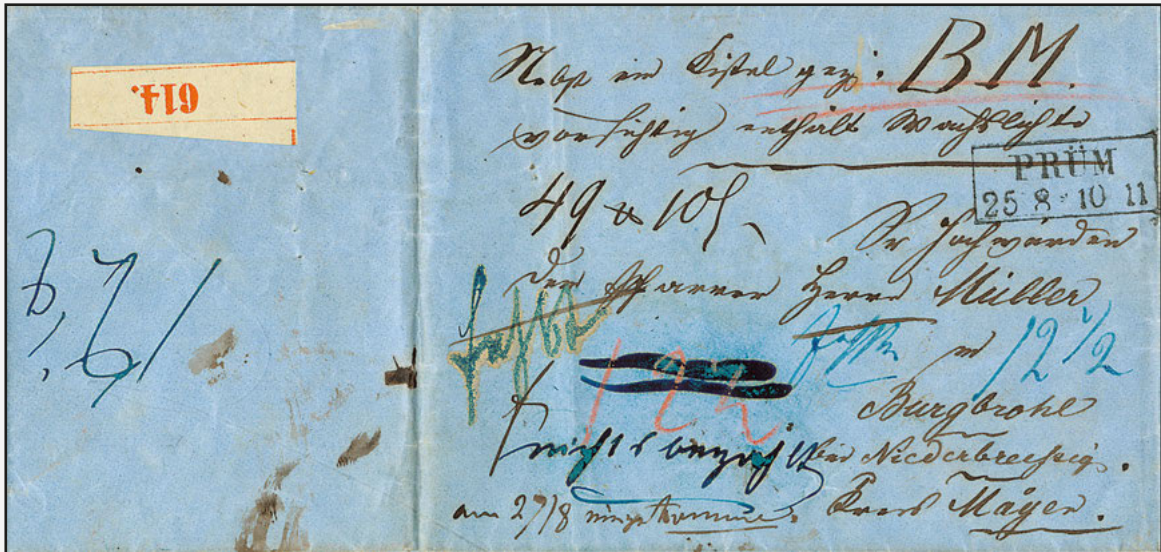 614.
Nebst ein Kistel gez: BM.
vorsichtig enthält Wachslichte
PRÜM
25 8 10 11
49 105
Sr Hochwürden
Der Pfarrer Herrn Müller
in 12 1/2
Burgbrohl
nichts bezahlt bei Niederbreisig.
am 27/8 angekommen. Kreis Mayen.